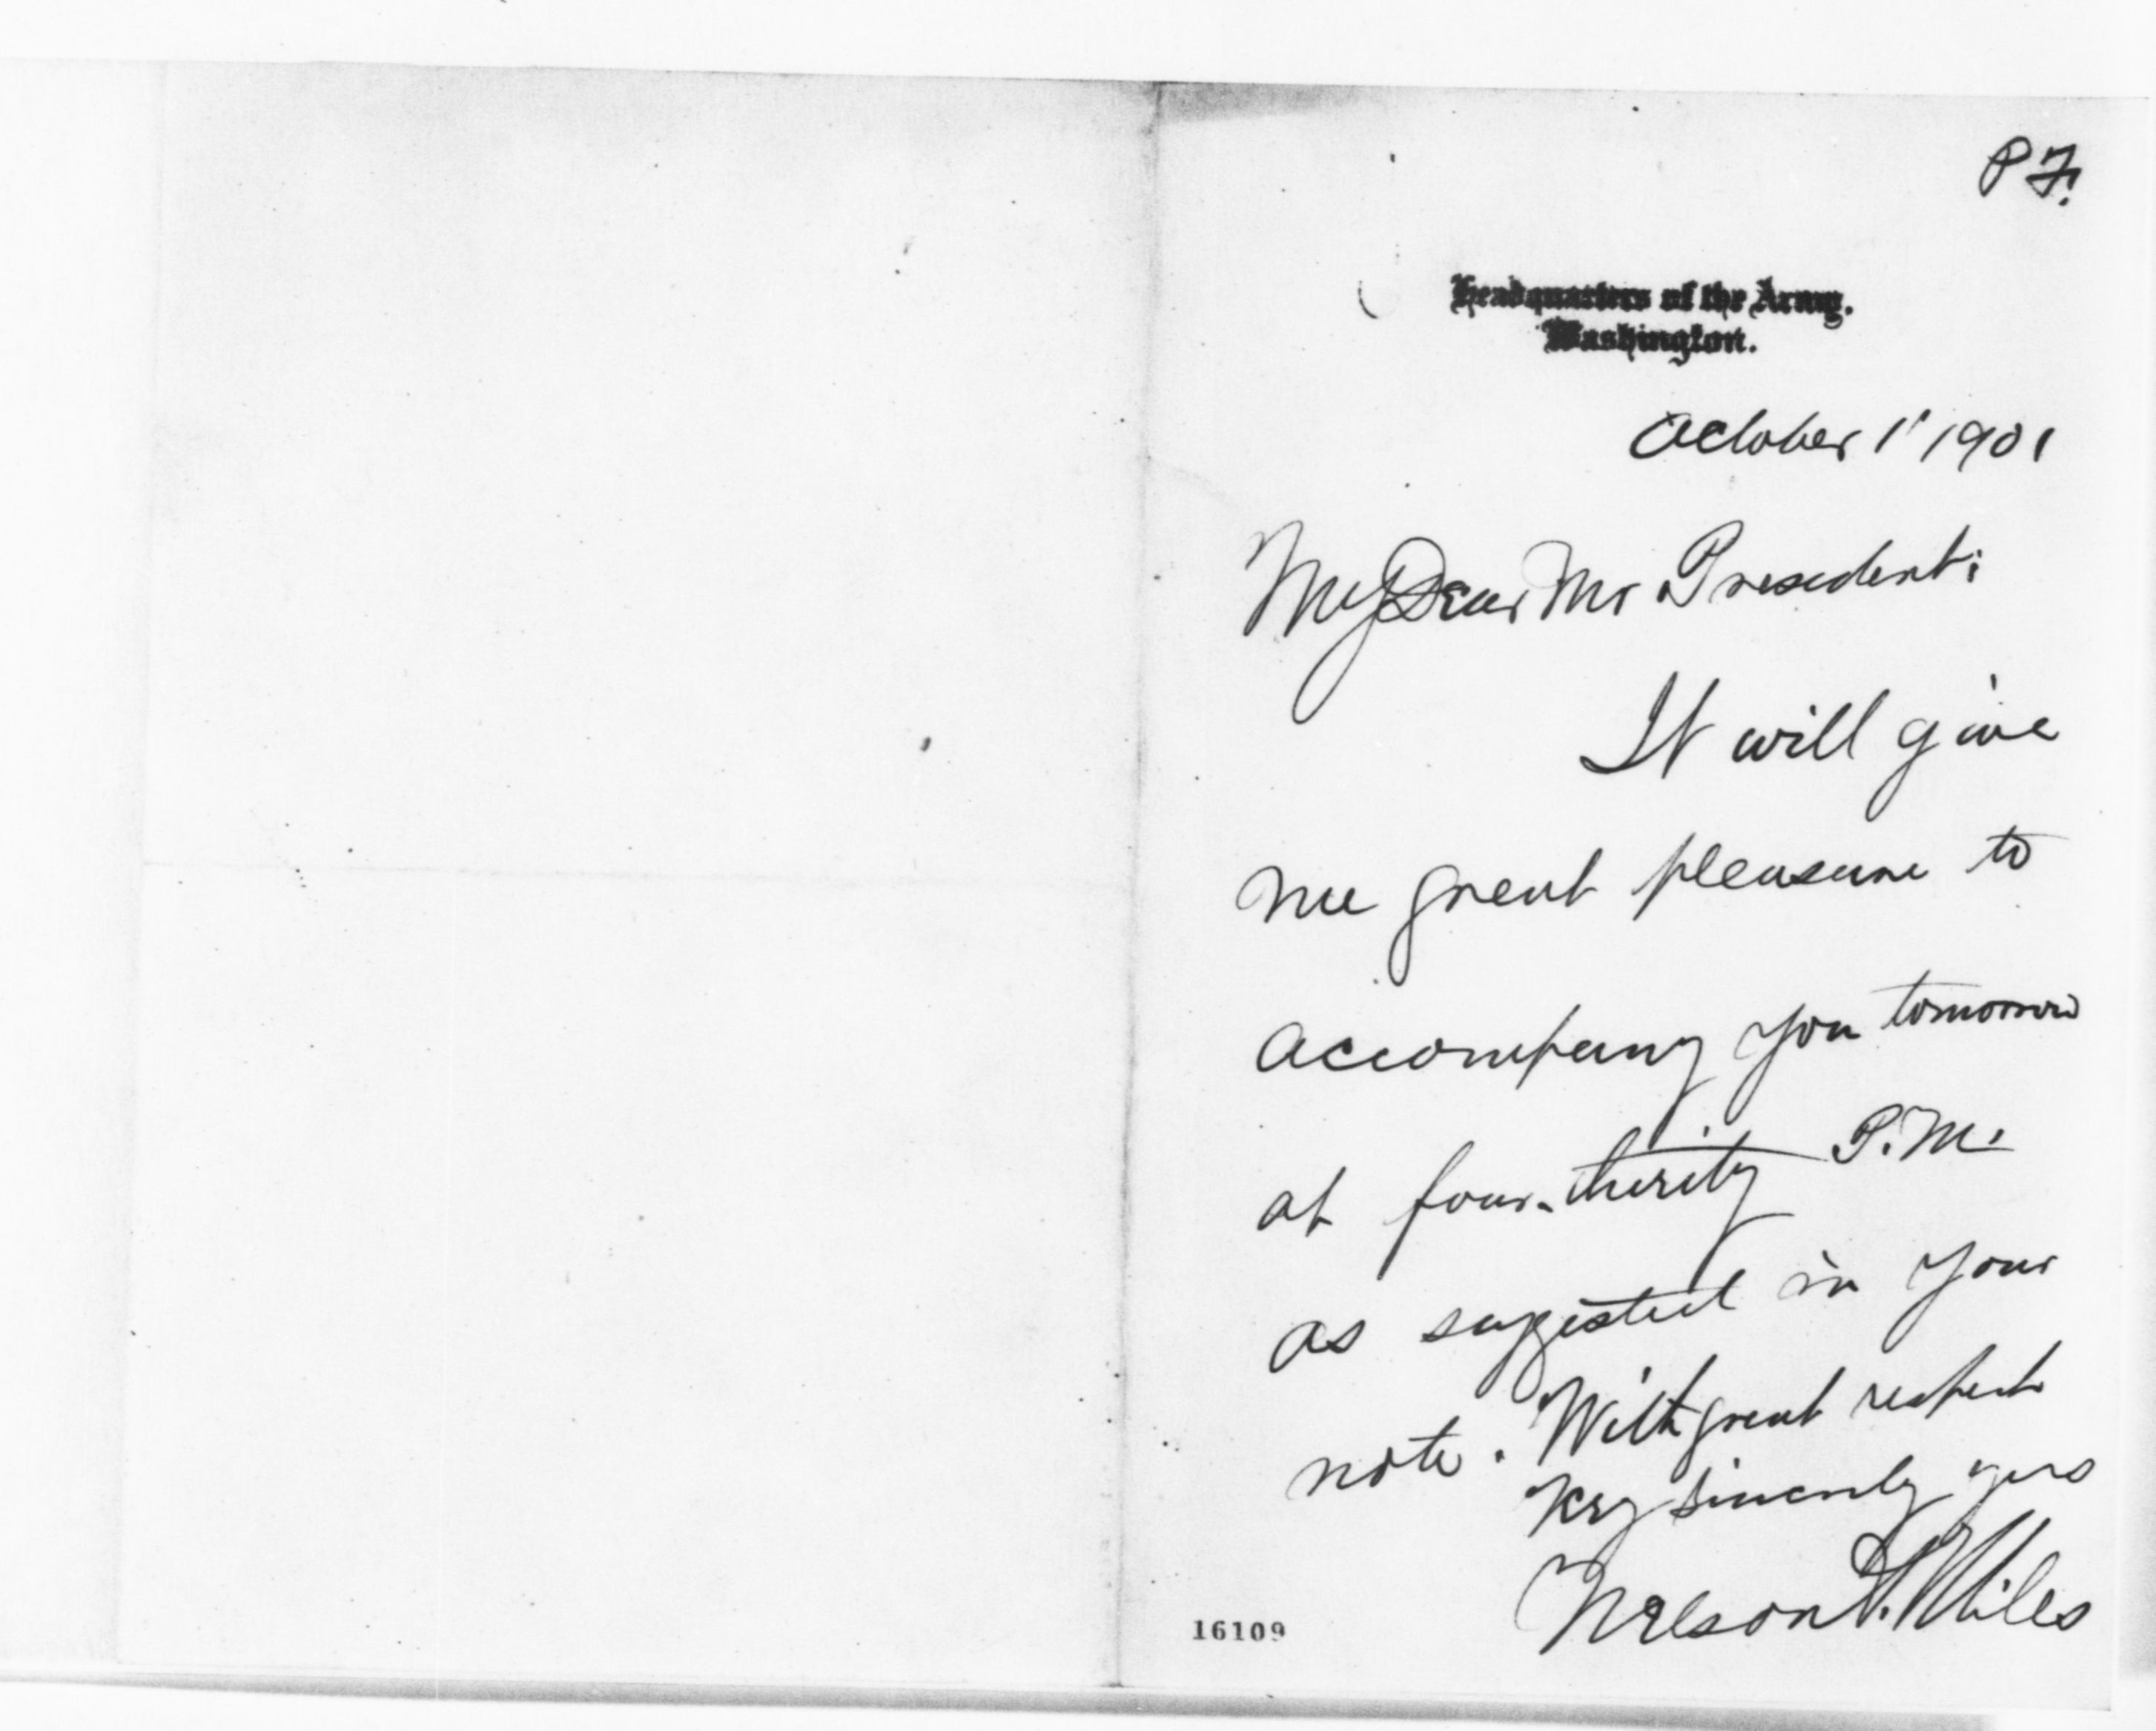 P F.
Headquarters of the Army.
Washington.
October 1" 1901
My Dear Mr President:
It will give
me great pleasure to
accompany you tomorrow
at four-thirity P.M.
as suggested in your
note. With great respect
Very sincerely yours
Nelson A. Miles
16109